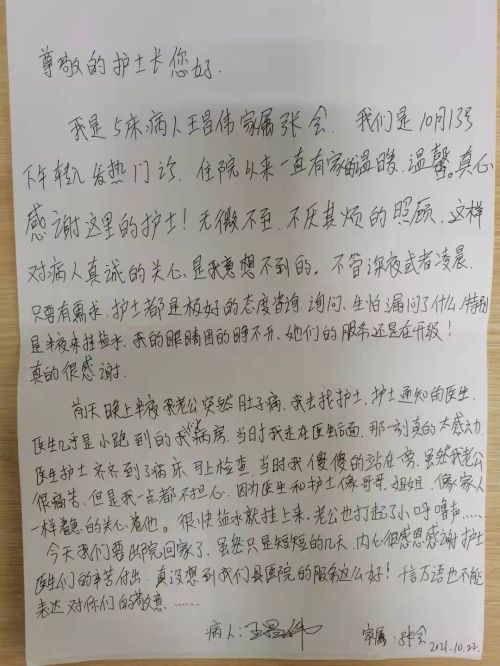 尊敬的护士长您好.
我是5床病人王昌伟家属张会. 我们是10月13号
下午转入发热门诊. 住院以来一直有家的温暖.温馨。真心
感谢这里的护士!无微不至.不厌其烦的照顾.这样
对病人真诚的关心.是我意想不到的。不管深夜或者凌晨.
只要有需求.护士都是极好的态度咨询.询问、生怕漏问了什么!特别
是半夜来挂盐水.我的眼睛困的睁不开、她们的服务还是在升级!
真的很感谢.
前天晚上半夜我老公突然肚子痛、我去找护士、护士通知的医生.
医生几乎是小跑到的我们病房.当时我走在医生后面,那一刻真的太感动.
医生护士齐齐到了病床.马上检查.当时我傻傻的站在旁.虽然我老公
很痛苦.但是我一点都不担心.因为医生和护士像哥哥.姐姐.像家人
一样着急的关心着他。很快盐水就挂上来.老公也打起了小呼噜声......
今天我们要出院回家了.虽然只是短短的几天.内心很感恩感谢护士
医生们的辛苦付出.真没想到我们县医院的服务这么好!千言万语也不能
表达对你们的敬意......
病人:王昌伟 家属:张会
2021.10.22.